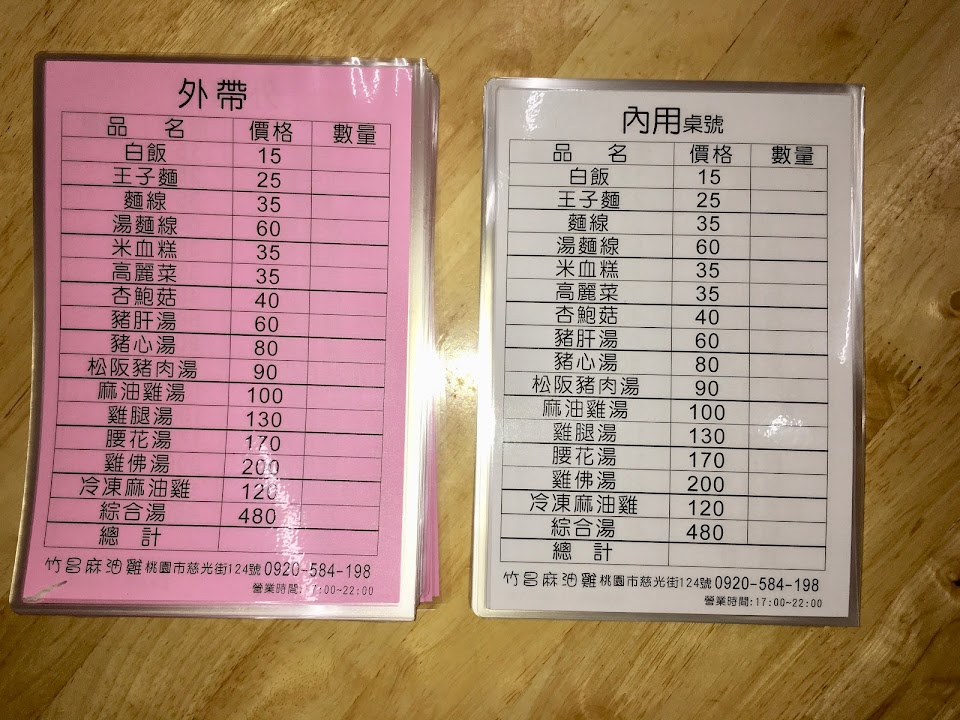 外帶
品 名 價格 數量
白飯 15
王子麵 25
麵線 35
湯麵線 60
米血糕 35
高麗菜 35
杏鮑菇 40
豬肝湯 60
豬心湯 80
松阪豬肉湯 90
麻油雞湯 100
雞腿湯 130
腰花湯 170
雞佛湯 200
冷凍麻油雞 120
綜合湯 480
總 計
竹昌麻油雞 桃園市慈光街124號 0920-584-198
營業時間:17:00~22:00
內用 桌號
品 名 價格 數量
白飯 15
王子麵 25
麵線 35
湯麵線 60
米血糕 35
高麗菜 35
杏鮑菇 40
豬肝湯 60
豬心湯 80
松阪豬肉湯 90
麻油雞湯 100
雞腿湯 130
腰花湯 170
雞佛湯 200
冷凍麻油雞 120
綜合湯 480
總 計
竹昌麻油雞 桃園市慈光街124號 0920-584-198
營業時間:17:00~22:00